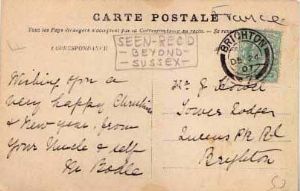 CARTE POSTALE
France
Tous les Pays étrangers n'acceptent pas la Correspondance au recto.
CORRESPONDANCE
SEEN-REC'D
-BEYOND-
SUSSEX-
BRIGHTON
DE 24
07
Wishing you a
very happy Christmas
& New year, from
your Uncle & self
Bodle
Mr J. Bodle
Tower Lodge
Queens Pk Rd
Brighton